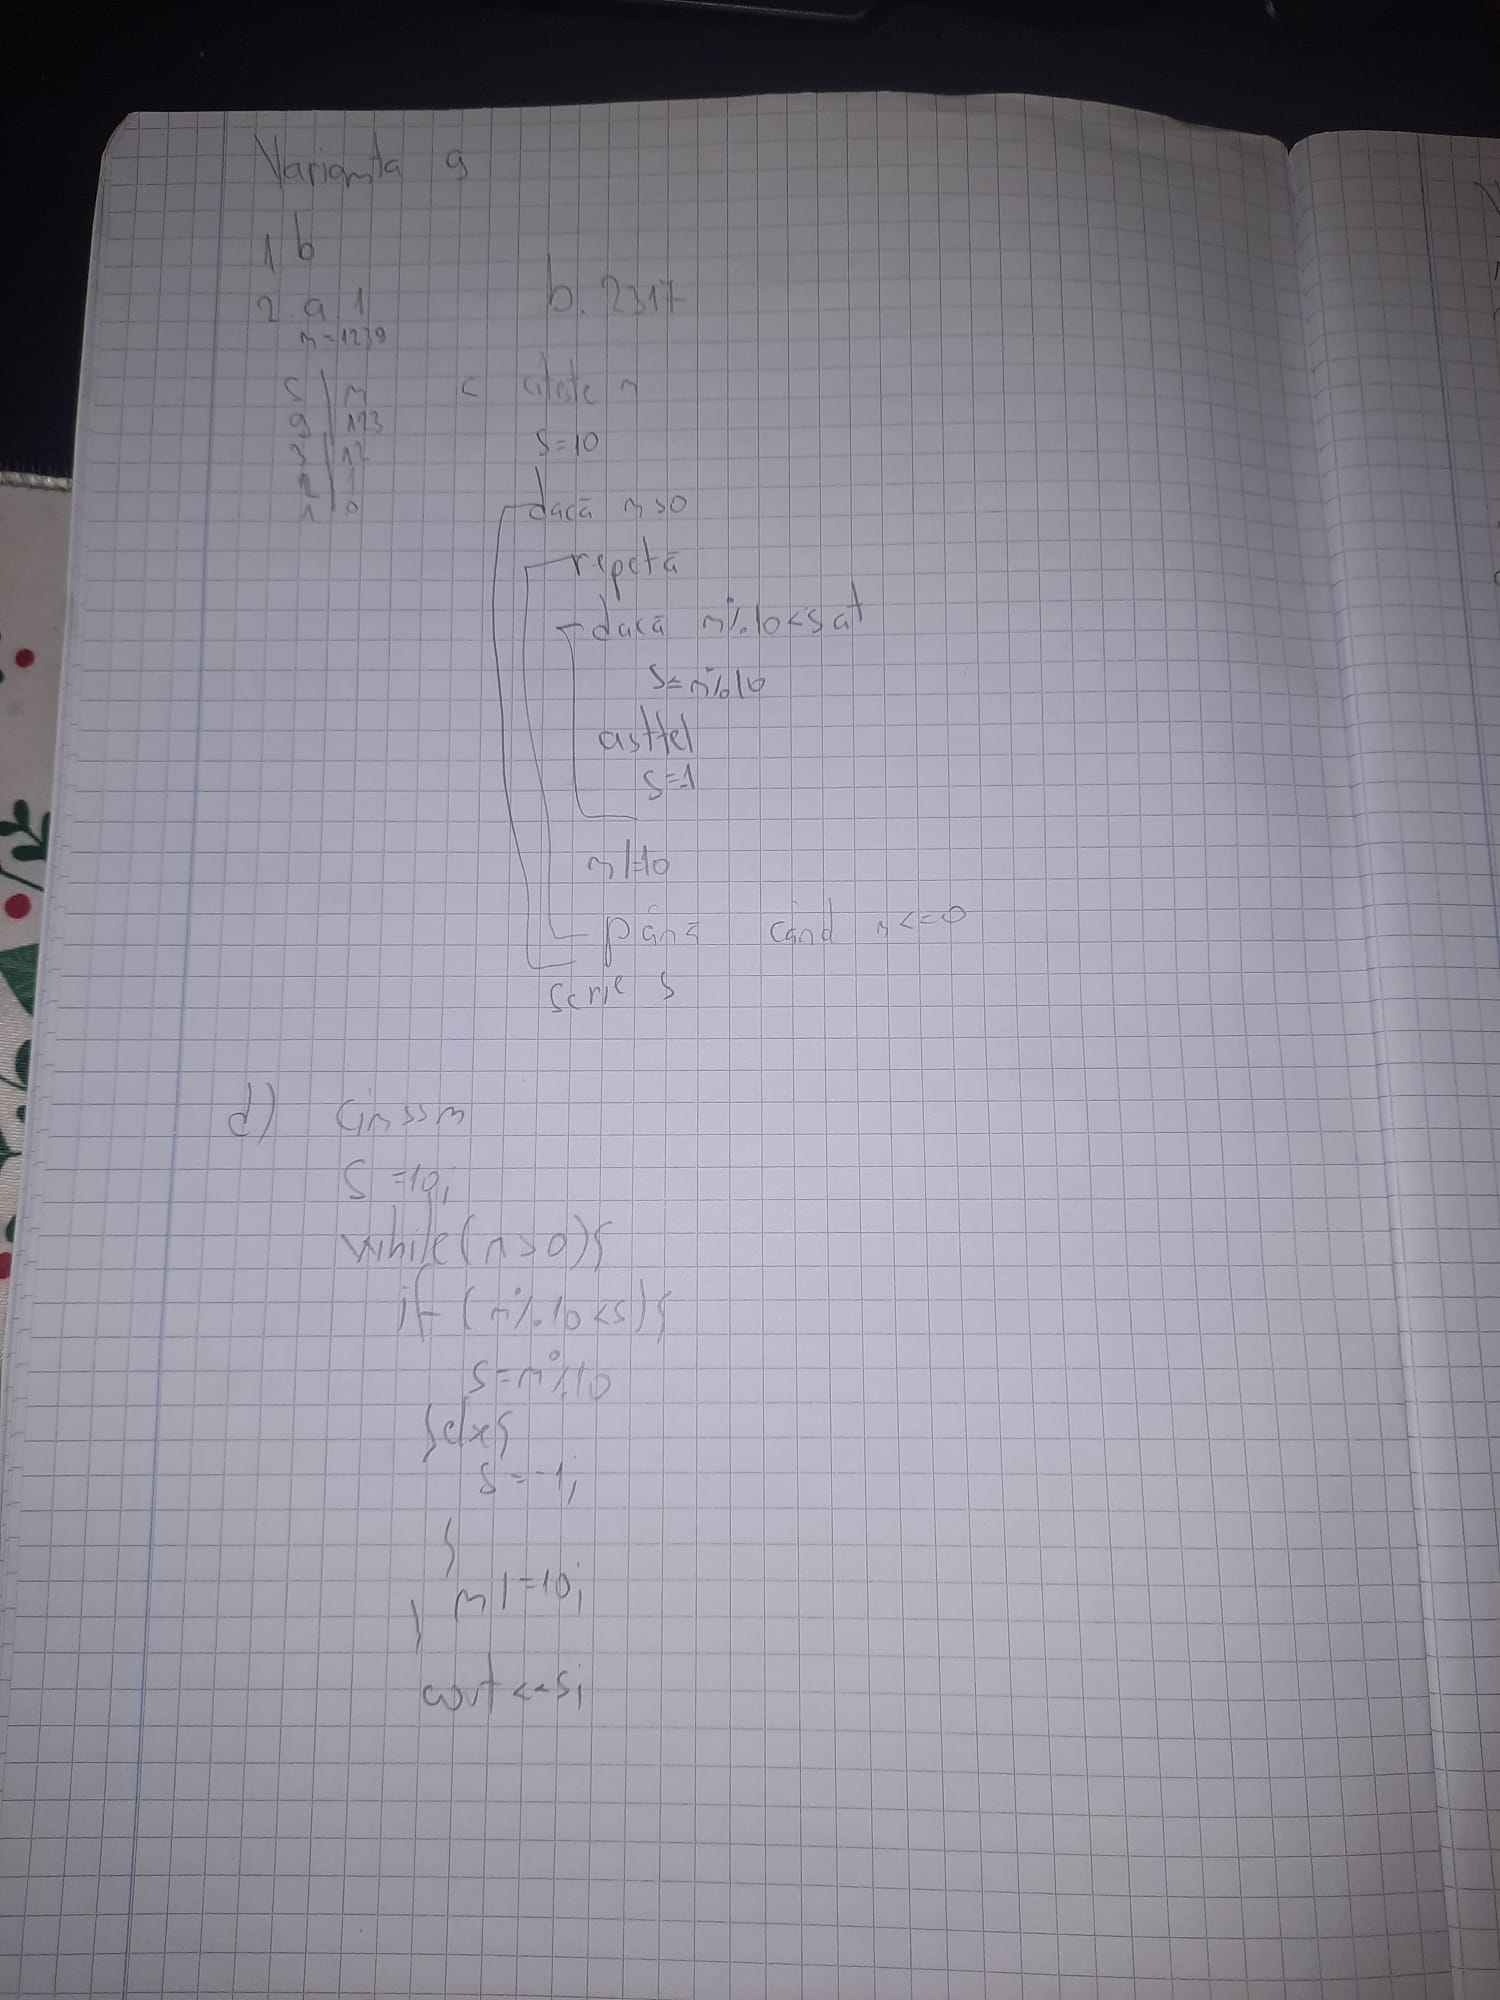 Varianta 9
1 b
2. a 1
b. 2317
n=1239
s | n
9 | 123
3 | 12
2 | 1
1 | 0
c citeste n
s=10
dacă n>0
repetă
dacă n%10<s at
s=n%10
astfel
s=-1
n/=10
până când n<=0
scrie s
d) cin>>n
s=10;
while(n>0){
if (n%10<s){
s=n%10
}else{
s=-1;
}
n/=10;
}
cout<<s;